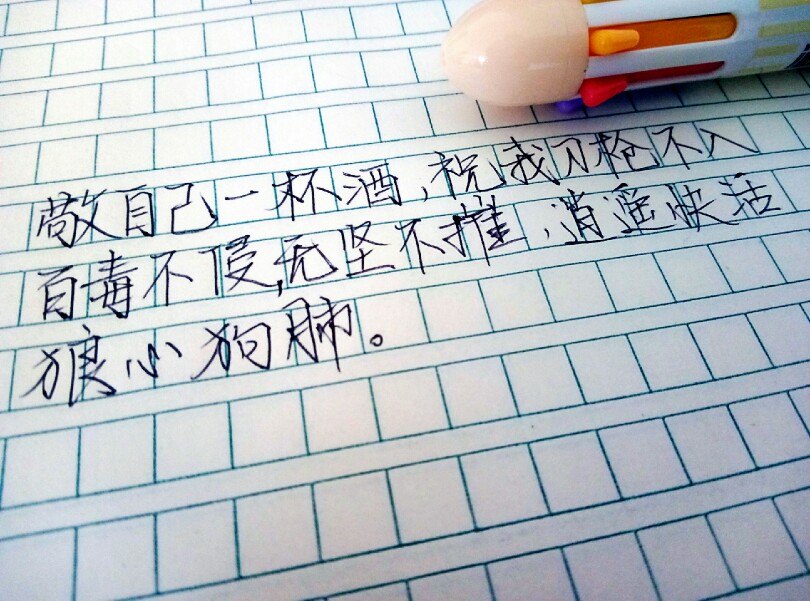 敬自己一杯酒,祝我刀枪不入
百毒不侵,无坚不摧,逍遥快活
狼心狗肺。